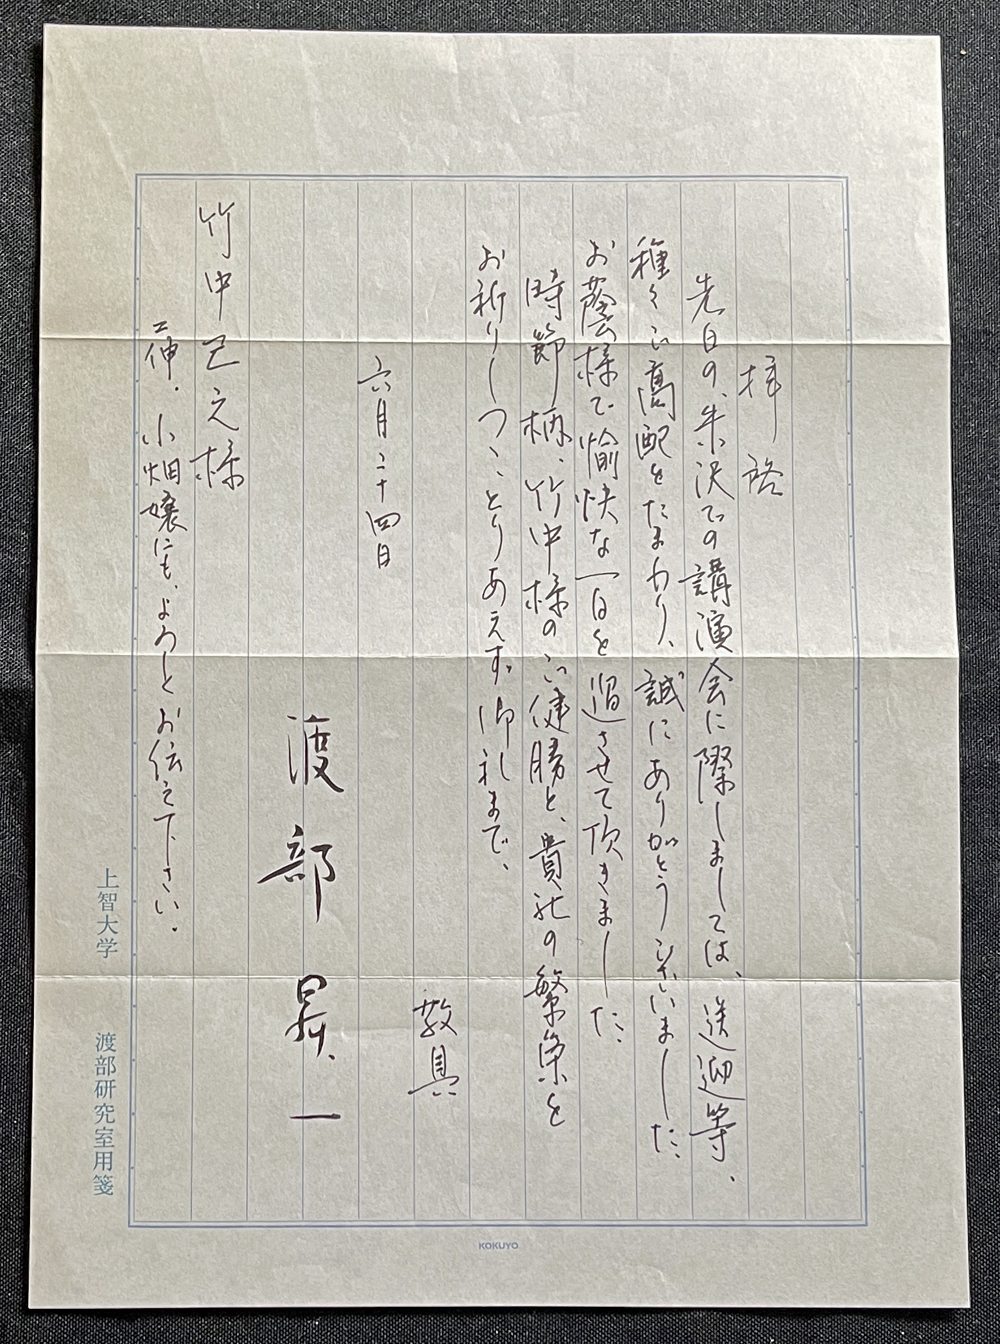 拝啓
先日の、米沢での講演会に際しましては、送迎等、
種々ご高配をたまわり、誠にありがとうございました。
お蔭様で愉快な一日を過させて頂きました。
時節柄、竹中様のご健勝と、貴社の繁栄を
お祈りしつつ、とりあえず御礼まで。
敬具
六月二十四日
渡部昇一
竹中己之様
二伸、小畑嬢にも、よろしくお伝え下さい。
上智大学 渡部研究室用箋
KOKUYO